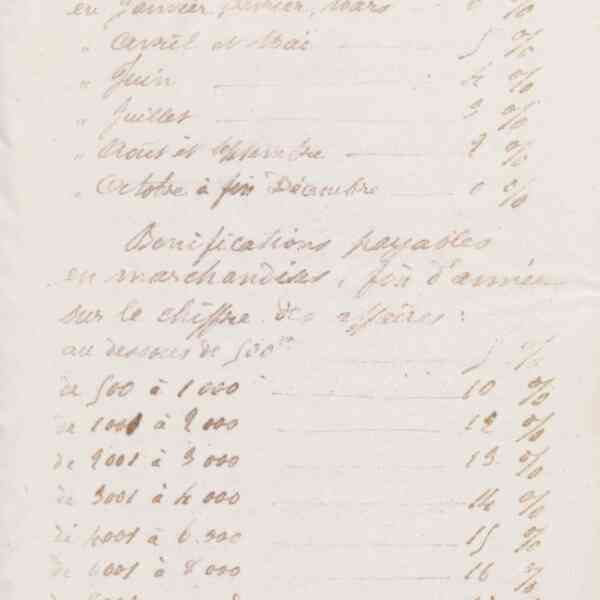 en Janvier, février, Mars — 6 %
" Avril et Mai — 5 %
" Juin — 4 %
" Juillet — 3 %
" Août et Septembre — 2 %
" Octobre à fin Décembre — 0 %
Bonifications payables
en marchandises, fin d'année
sur le chiffre des affaires :
au dessous de 500 — 5 %
de 500 à 1000 — 10 %
de 1001 à 2000 — 12 %
de 2001 à 3000 — 13 %
de 3001 à 4000 — 14 %
de 4001 à 6.000 — 15 %
de 6001 à 8000 — 16 %